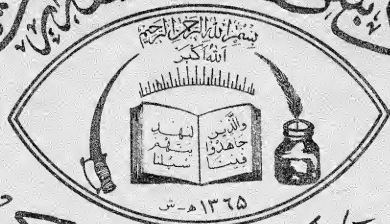 بسم الله الرحمن الرحيم
الله اكبر
والذين
جاهدوا
فينا
لنهد
ينهم
سبلنا
۱۳۶۵ هـ - ش